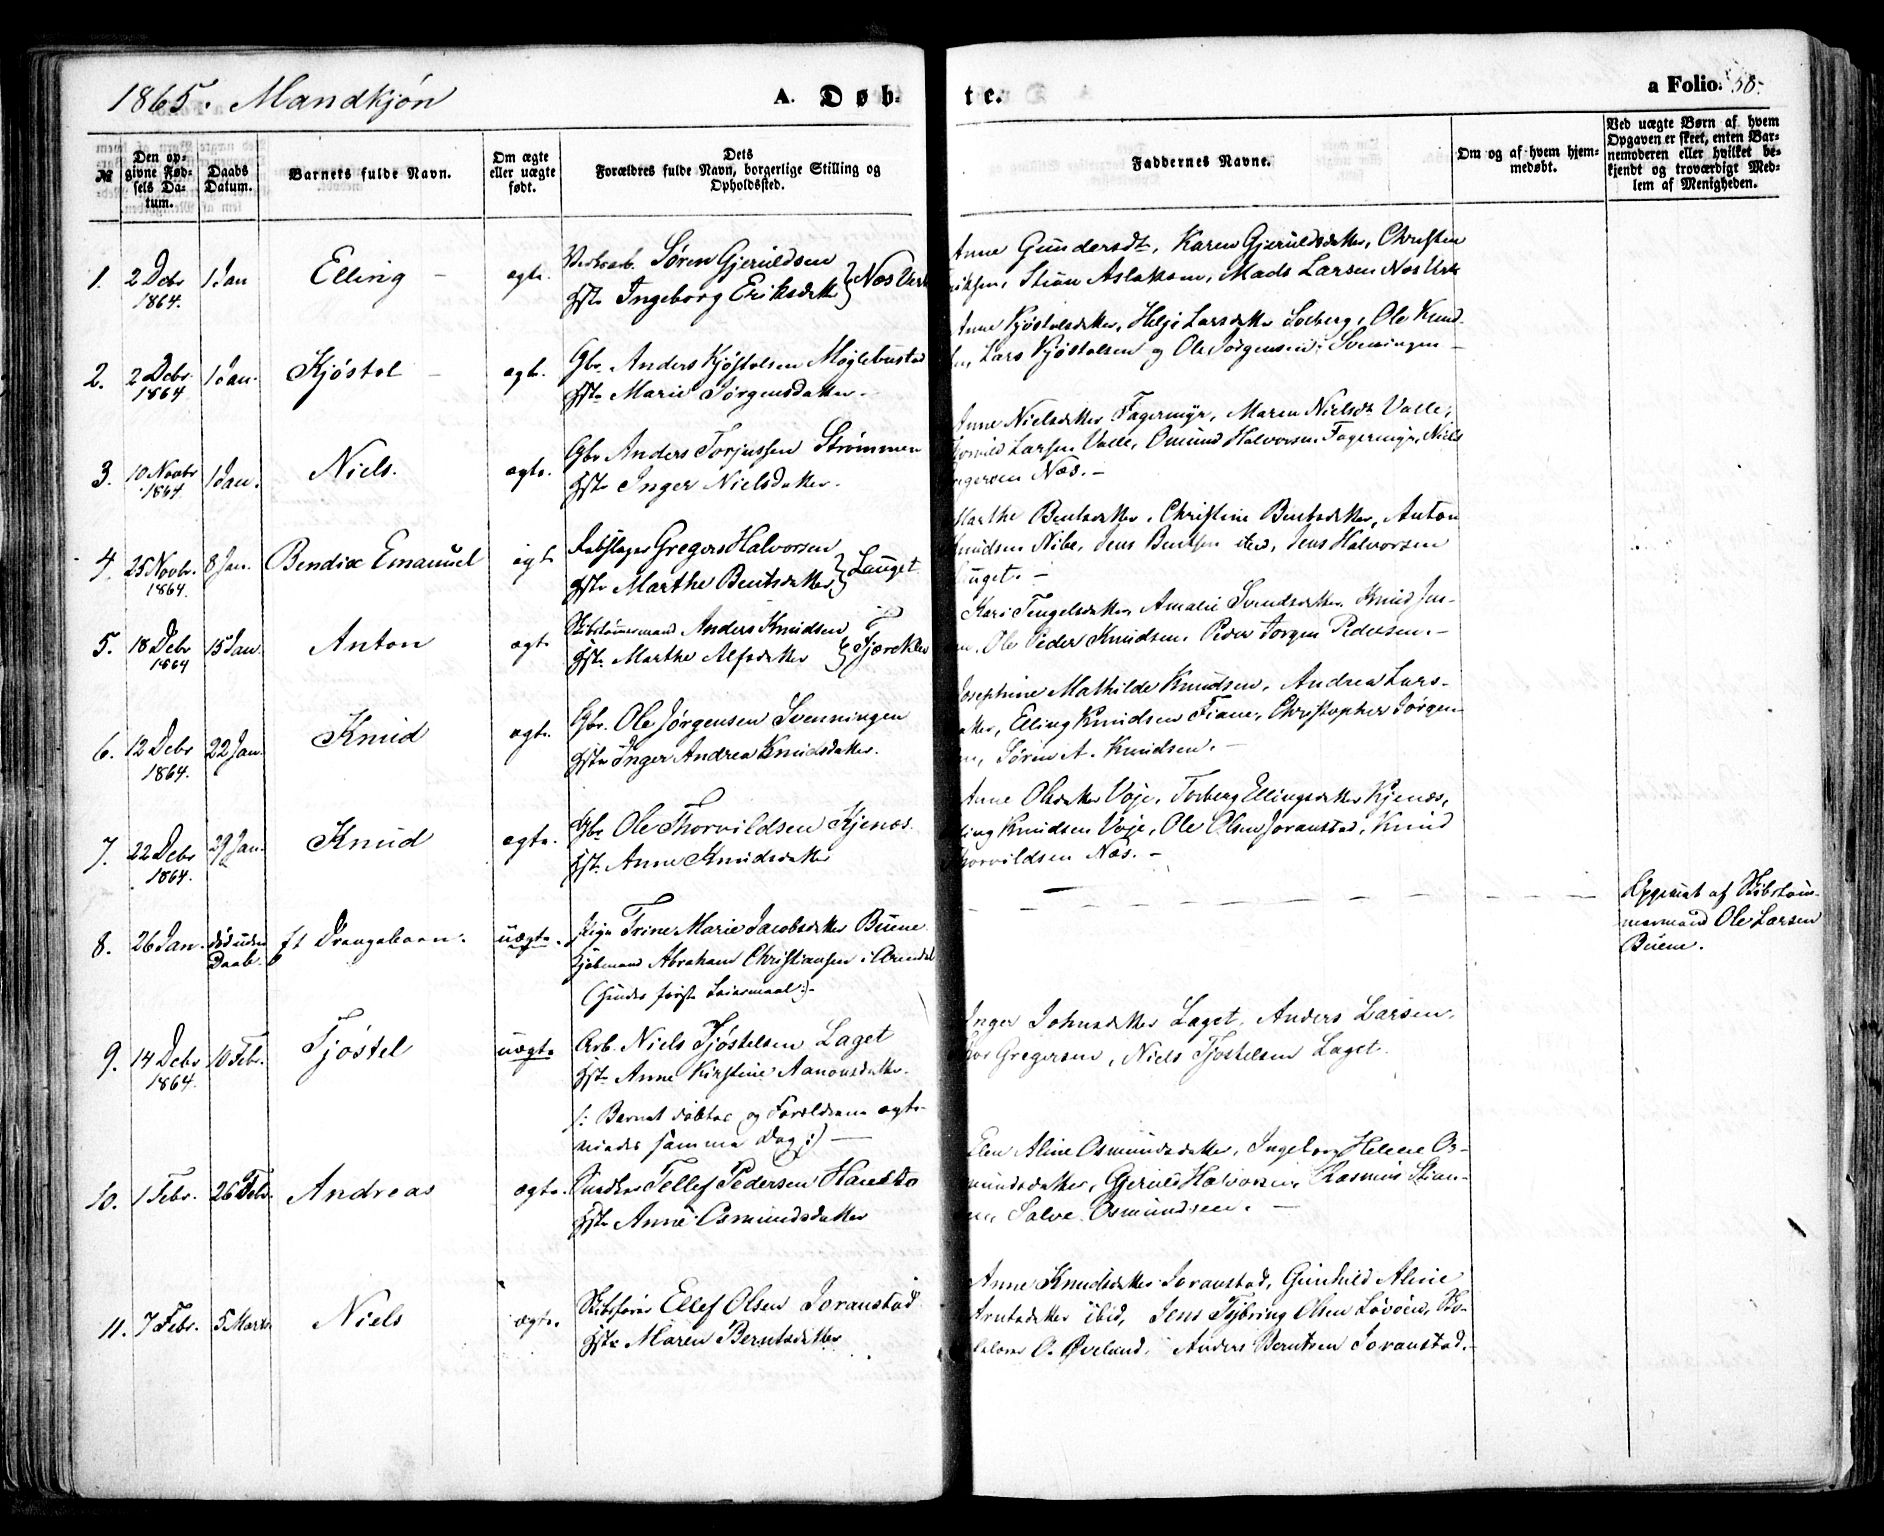 1865. Mandkjön
A. Døb-
te.
a Folio. 58.
№
Den op-
givne Fød-
sels Da-
tum.
Daabs
Datum.
Barnets fulde Navn.
Om ægte
eller uægte
født.
Dets
Forældres fulde Navn, borgerlige Stilling og
Opholdssted.
Faddernes Navne.
Om og af hvem hjem-
medøbt.
Ved uægte Børn af hvem
Opgaven er skeet, enten Bar-
nemoderen eller hvilket be-
kjendt og troværdigt Med-
lem af Menigheden.
1. 2 Debr 1 Jan Elling ægte. Søren Gjeruldsen
1864. Hst. Ingeborg Eriksdatter } Næs Verk
Anne Gundersdt, Karen Gjeruldsdatter, Christen
Stian Aslaksen, Mads Larsen Næs Verk
2. 2 Debr 1 Jan. Kjöstol ægt. Gbr. Anders Kjöstolsen
1864 Hst. Marie Jörgensdatter.
Anne Kjöstolsdatter, Helje Larsdatter Solberg, Ole Knud-
Lars Kjöstolsen og Ole Jörgensen Svenningen
3. 10 Novbr 1 Jan. Niels. ægte. Gbr Anders Torjussen Strömmen
1864 Hst. Inger Nielsdatter.
Anne Nielsdatter Fagermyr, Maren Nielsdt Valle,
Larsen Valle, Omund Halvorsen Fagermyr, Niels
Næs.
4. 25 Novbr. 8 Jan. Bendix Emanuel ægt Rebslager Gregers Halvorsen
1864. Hst. Marthe Bentsdatter } Lauget
Marthe Bentsdatter, Christine Bentsdatter, Anton
Knudsen Nibe, Jens Bentsen ibid, Jens Halvorsen
Lauget.
5. 18 Debr 15 Jan. Anton ægt. Skibstømmermand Anders Knudsen
1864 Hst. Marthe Alfsdatter
Kari Tengelsdatter, Amalie Svendsdatter, Knud Jen-
Ole Peder Knudsen, Peder Jörgen Pedersen.
6. 12 Debr 22 Jan. Knud ægt. Gbr. Ole Jörgensen Svenningen
1864. Hst. Inger Andrea Knudsdatter.
Josephine Mathilde Knudsen, Andrea Lars-
datter, Elling Knudsen Fiane, Christopher Jörgen-
sen, Sören A. Knudsen.
7. 22 Debr 29 Jan. Knud ægte. Gbr Ole Thorvildsen Kjenæs.
1864. Hst. Anne Knudsdatter
Anne Olsdatter Voje, Torberg Ellingsdatter Kjenæs,
Elling Knudsen Voje, Ole Olsen Joranstad, Knud
Thorvildsen Næs.
8. 26 Jan. död uden ft Drengebarn. uægte. Pige Trine Marie Jacobsdatter Buene
Daab. Kjöbmand Abraham Christiansen i Arendal
(Hendes første Leiermaal:)
Opgivet af Skibstöm-
mermand Ole Larsen
Buene.
9. 14 Debr 10 Febr. Tjöstel uægte Arb. Niels Tjöstelsen Laget
1864. Hst. Anne Kirstine Aanonsdatter.
/: Barnet döbtes og Forældrene ægte-
viedes samme Dag :/
Inger Johnsdatter Laget, Anders Larsen,
Gregersen, Niels Tjostelsen Laget.
10. 1 Febr. 26 Febr. Andreas ægte. Tellef Pedersen
Hst. Anne Osmundsdatter
Elen Aline Osmundsdatter, Ingeborg Helene Os-
mundsdatter, Gjeruld Halvorsen, Rasmus Stian-
sen, Salve Osmundsen.
11. 7 Febr. 5 Marts Niels ægte. Skibsfører Ellef Olsen Joranstad
Hst. Maren Berntsdatter
Anne Knudsdatter Joranstad, Gunhild Aline
Arntsdatter ibid, Jens Tybring Olsen Lövöen,
O. Øveland, Anders Berntsen Joranstad.